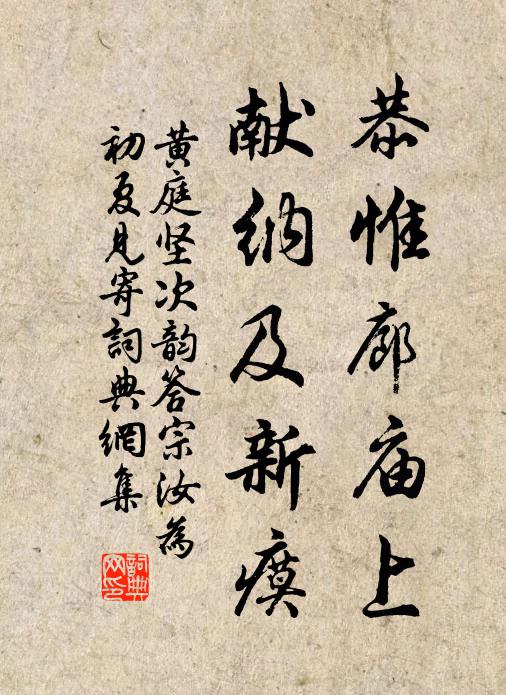 恭惟廊庙上
献纳及新瘼
黄庭坚次韵答宗汝为
初夏见寄詞典網集
詞典网印